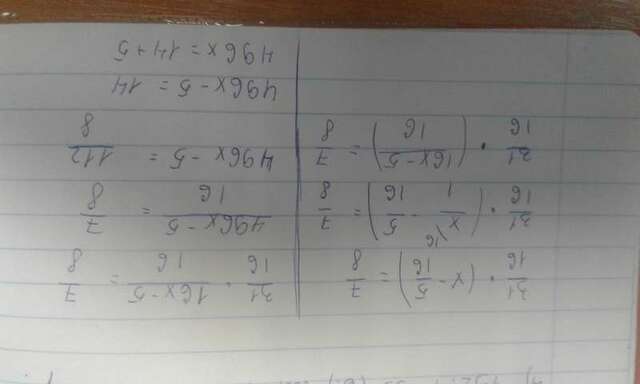 31/16 · (x - 5/16) = 7/8
31/16 · (x^16/1 - 5/16) = 7/8
31/16 · (16x - 5/16) = 7/8
31/16 · 16x - 5/16 = 7/8
496x - 5/16 = 7/8
496x - 5 = 112/8
496x - 5 = 14
496x = 14 + 5